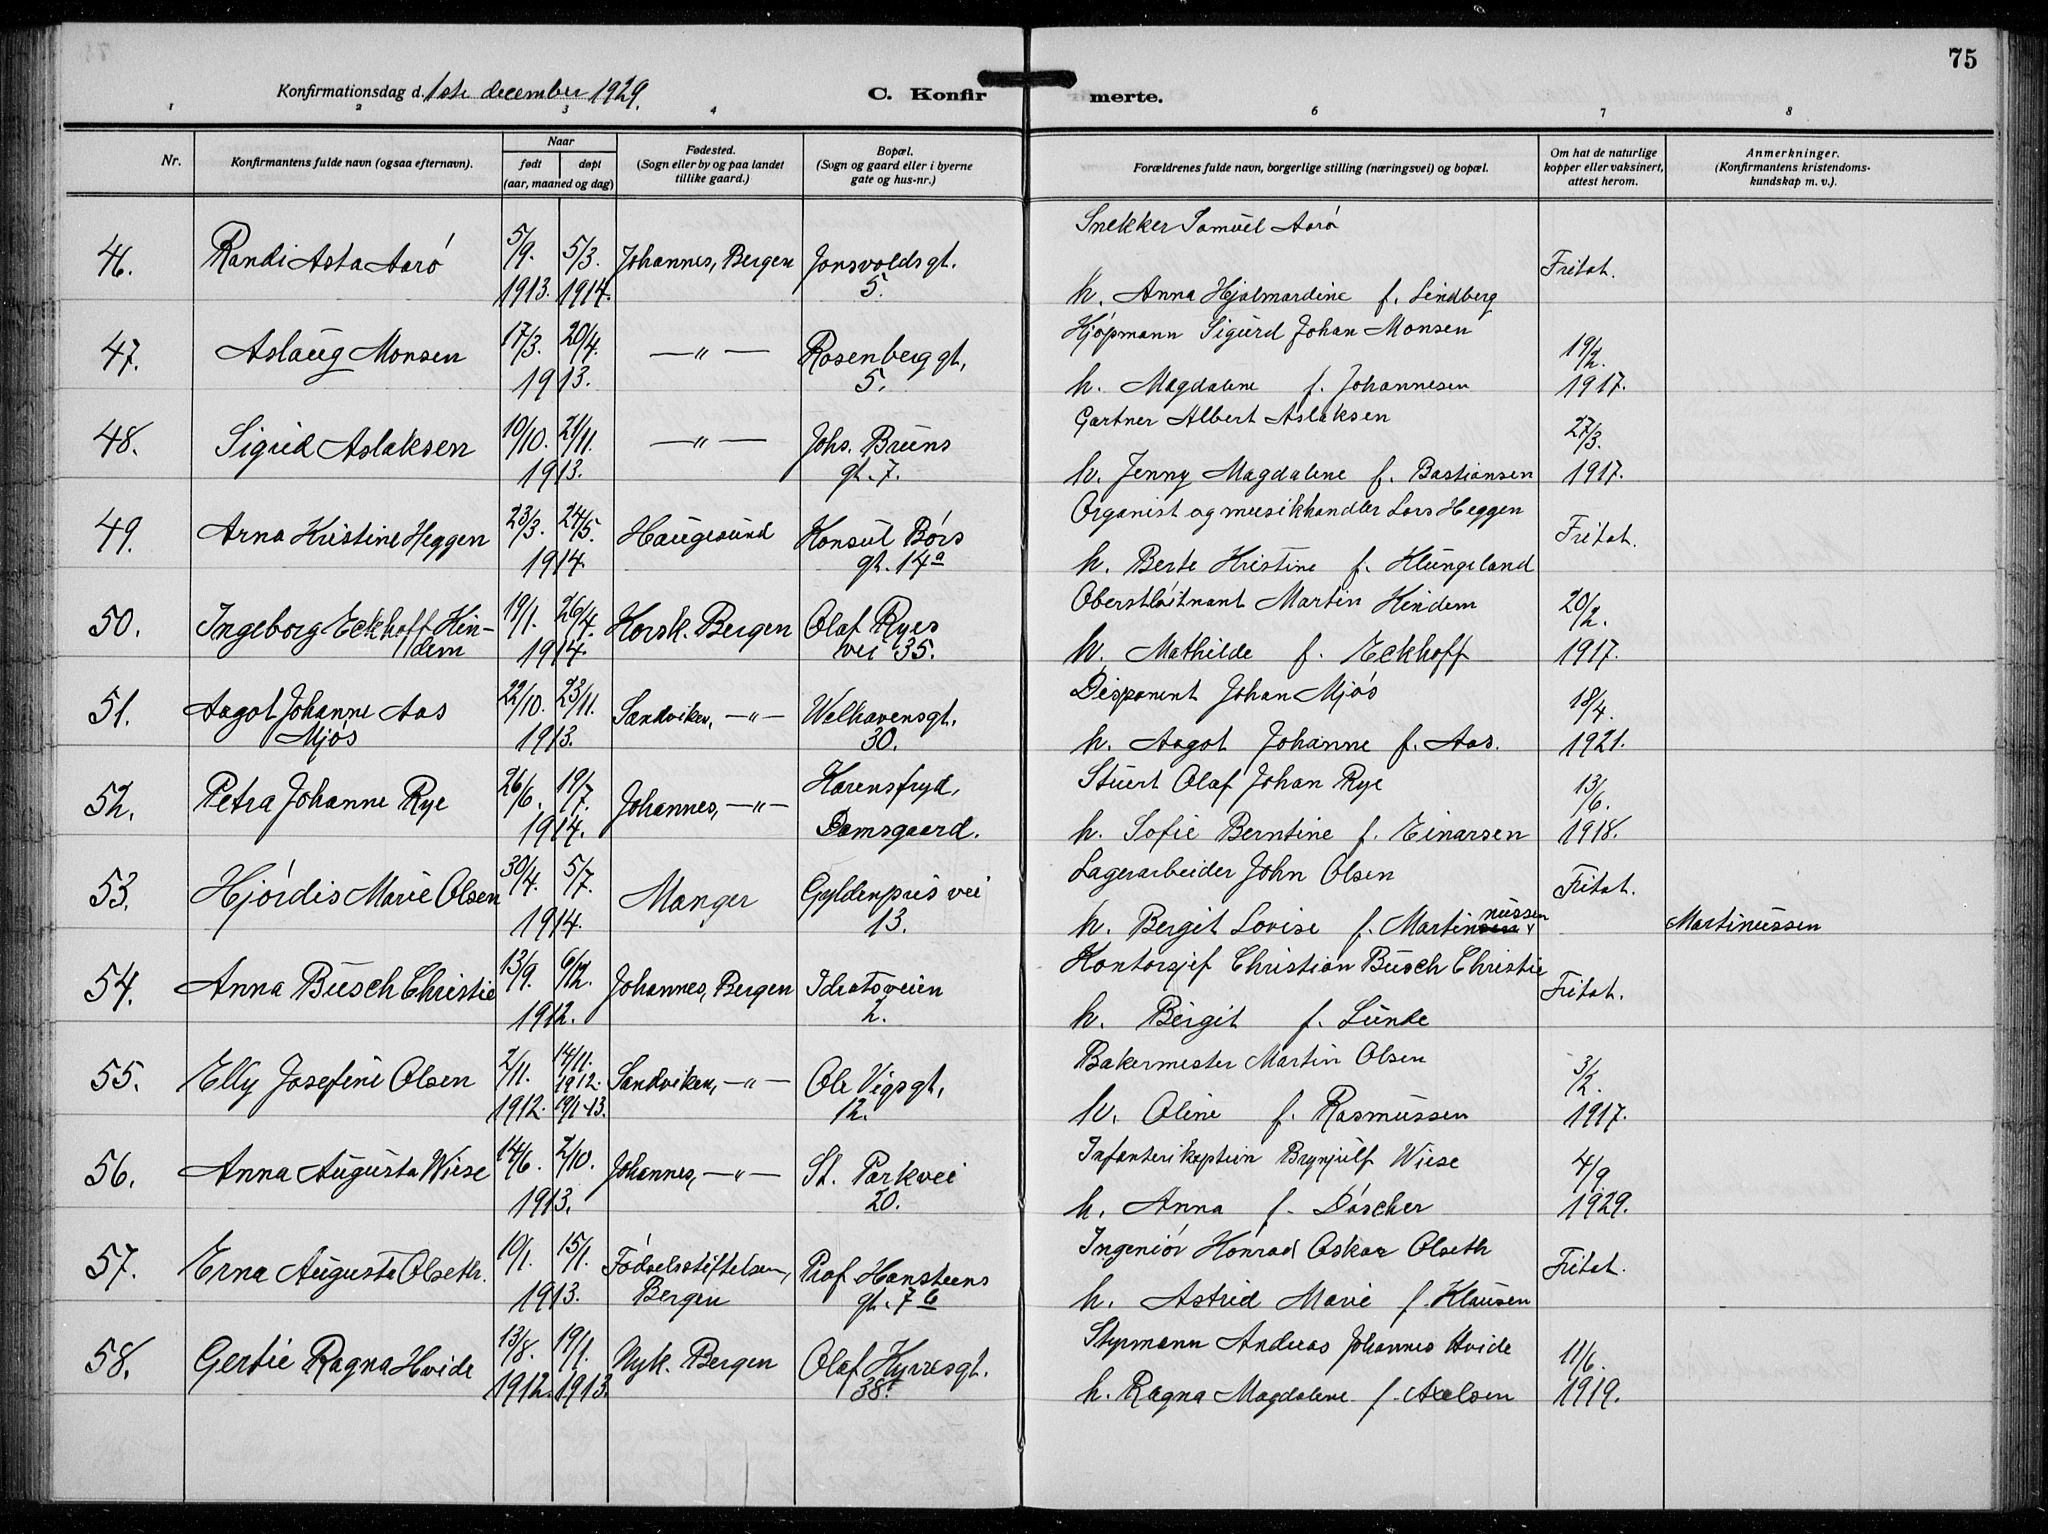 75
Konfirmationsdag d. 1ste december 1929.
C. Konfirmerte.
1 2 3 4 6 7 8
Nr.
Konfirmantens fulde navn (ogsaa efternavn).
Naar
født døpt
(aar, maaned og dag)
Fødested.
(Sogn eller by og paa landet
tillike gaard.)
Bopæl.
(Sogn og gaard eller i byerne
gate og hus-nr.)
Forældrenes fulde navn, borgerlige stilling (næringsvei) og bopæl.
Om hat de naturlige
kopper eller vaksinert,
attest herom.
Anmerkninger.
(Konfirmantens kristendoms-
kundskap m. v.).
46. Randi Asta Aarö 5/9. 1913. 5/3. 1914. Johannes, Bergen Jonsvoldsgt. 5.
Snekker Samuel Aarö
h. Anna Hjalmardine f. Lindberg
Fritat.
47. Aslaug Monsen 17/3. 20/4. 1913. —"— Rosenberggt. 5.
Kjöpmann Sigurd Johan Monsen
h. Magdalene f. Johannesen
19/2. 1917.
48. Sigrid Aslaksen 10/10. 21/11. 1913. —"— Johs. Bruns gt. 7.
Gartner Albert Aslaksen
h. Jenny Magdalene f. Bastiansen
27/3. 1917.
49. Arna Kristine Heggen 23/3. 24/5. 1914. Haugesund Konsul Börs gt. 14a
Organist og musikhandler Lars Heggen
h. Berte Kristine f. Klungeland
Fritat.
50. Ingeborg Eckhoff Kindem 19/1. 26/4. 1914. Korsk. Bergen Olaf Ryes vei 35.
Oberstlöitnant Martin Kindem
h. Mathilde f. Eckhoff
20/2. 1917.
51. Aagot Johanne Aas Mjös 22/10. 23/11. 1913. Sandviken, —"— Welhavensgt. 30.
Disponent Johan Mjös
h. Aagot Johanne f. Aas.
18/4. 1921.
52. Petra Johanne Rye 26/6. 19/7. 1914. Johannes, —"— Karensfryd, Damsgaard.
Stuert Olaf Johan Rye
h. Sofie Berntine f. Einarsen
13/6. 1918.
53. Hjördis Marie Olsen 30/4. 5/7. 1914. Manger Gyldenpris vei 13.
Lagerarbeider John Olsen
h. Bergit Lovise f. Martinsen nussen
Fritat.
Martinussen
54. Anna Busch Christie 13/9. 6/12. 1912. Johannes, Bergen Idratsveien 2.
Kontorsjef Christian Busch Christie
h. Birgit f. Lunde
Fritat.
55. Elly Josefine Olsen 2/11. 1912. 14/11. 1912. 19/1-13. Sandviken, —"— Ole Vigsgt. 12.
Bakermester Martin Olsen
h. Oline f. Rasmussen
3/2. 1917.
56. Anna Augusta Wiese 14/6. 2/10. 1913. Johannes, —"— St. Parkvei 20.
Infanterikaptein Brynjulf Wiese
h. Anna f. Döscher
4/9 1929.
57. Erna Augusta Olseth. 10/1. 15/1. 1913. Födselsstiftelsen, Bergen Prof Hansteens gt. 7 b
Ingeniör Konrad Oskar Olseth
h. Astrid Marie f. Klausen
Fritat.
58. Gertie Ragna Hvide 13/8. 1912. 19/1. 1913. Nyk. Bergen Olaf Kyrresgt. 38.
Styrmann Andreas Johannes Hvide
h. Ragna Magdalene f. Axelsen
11/6. 1919.